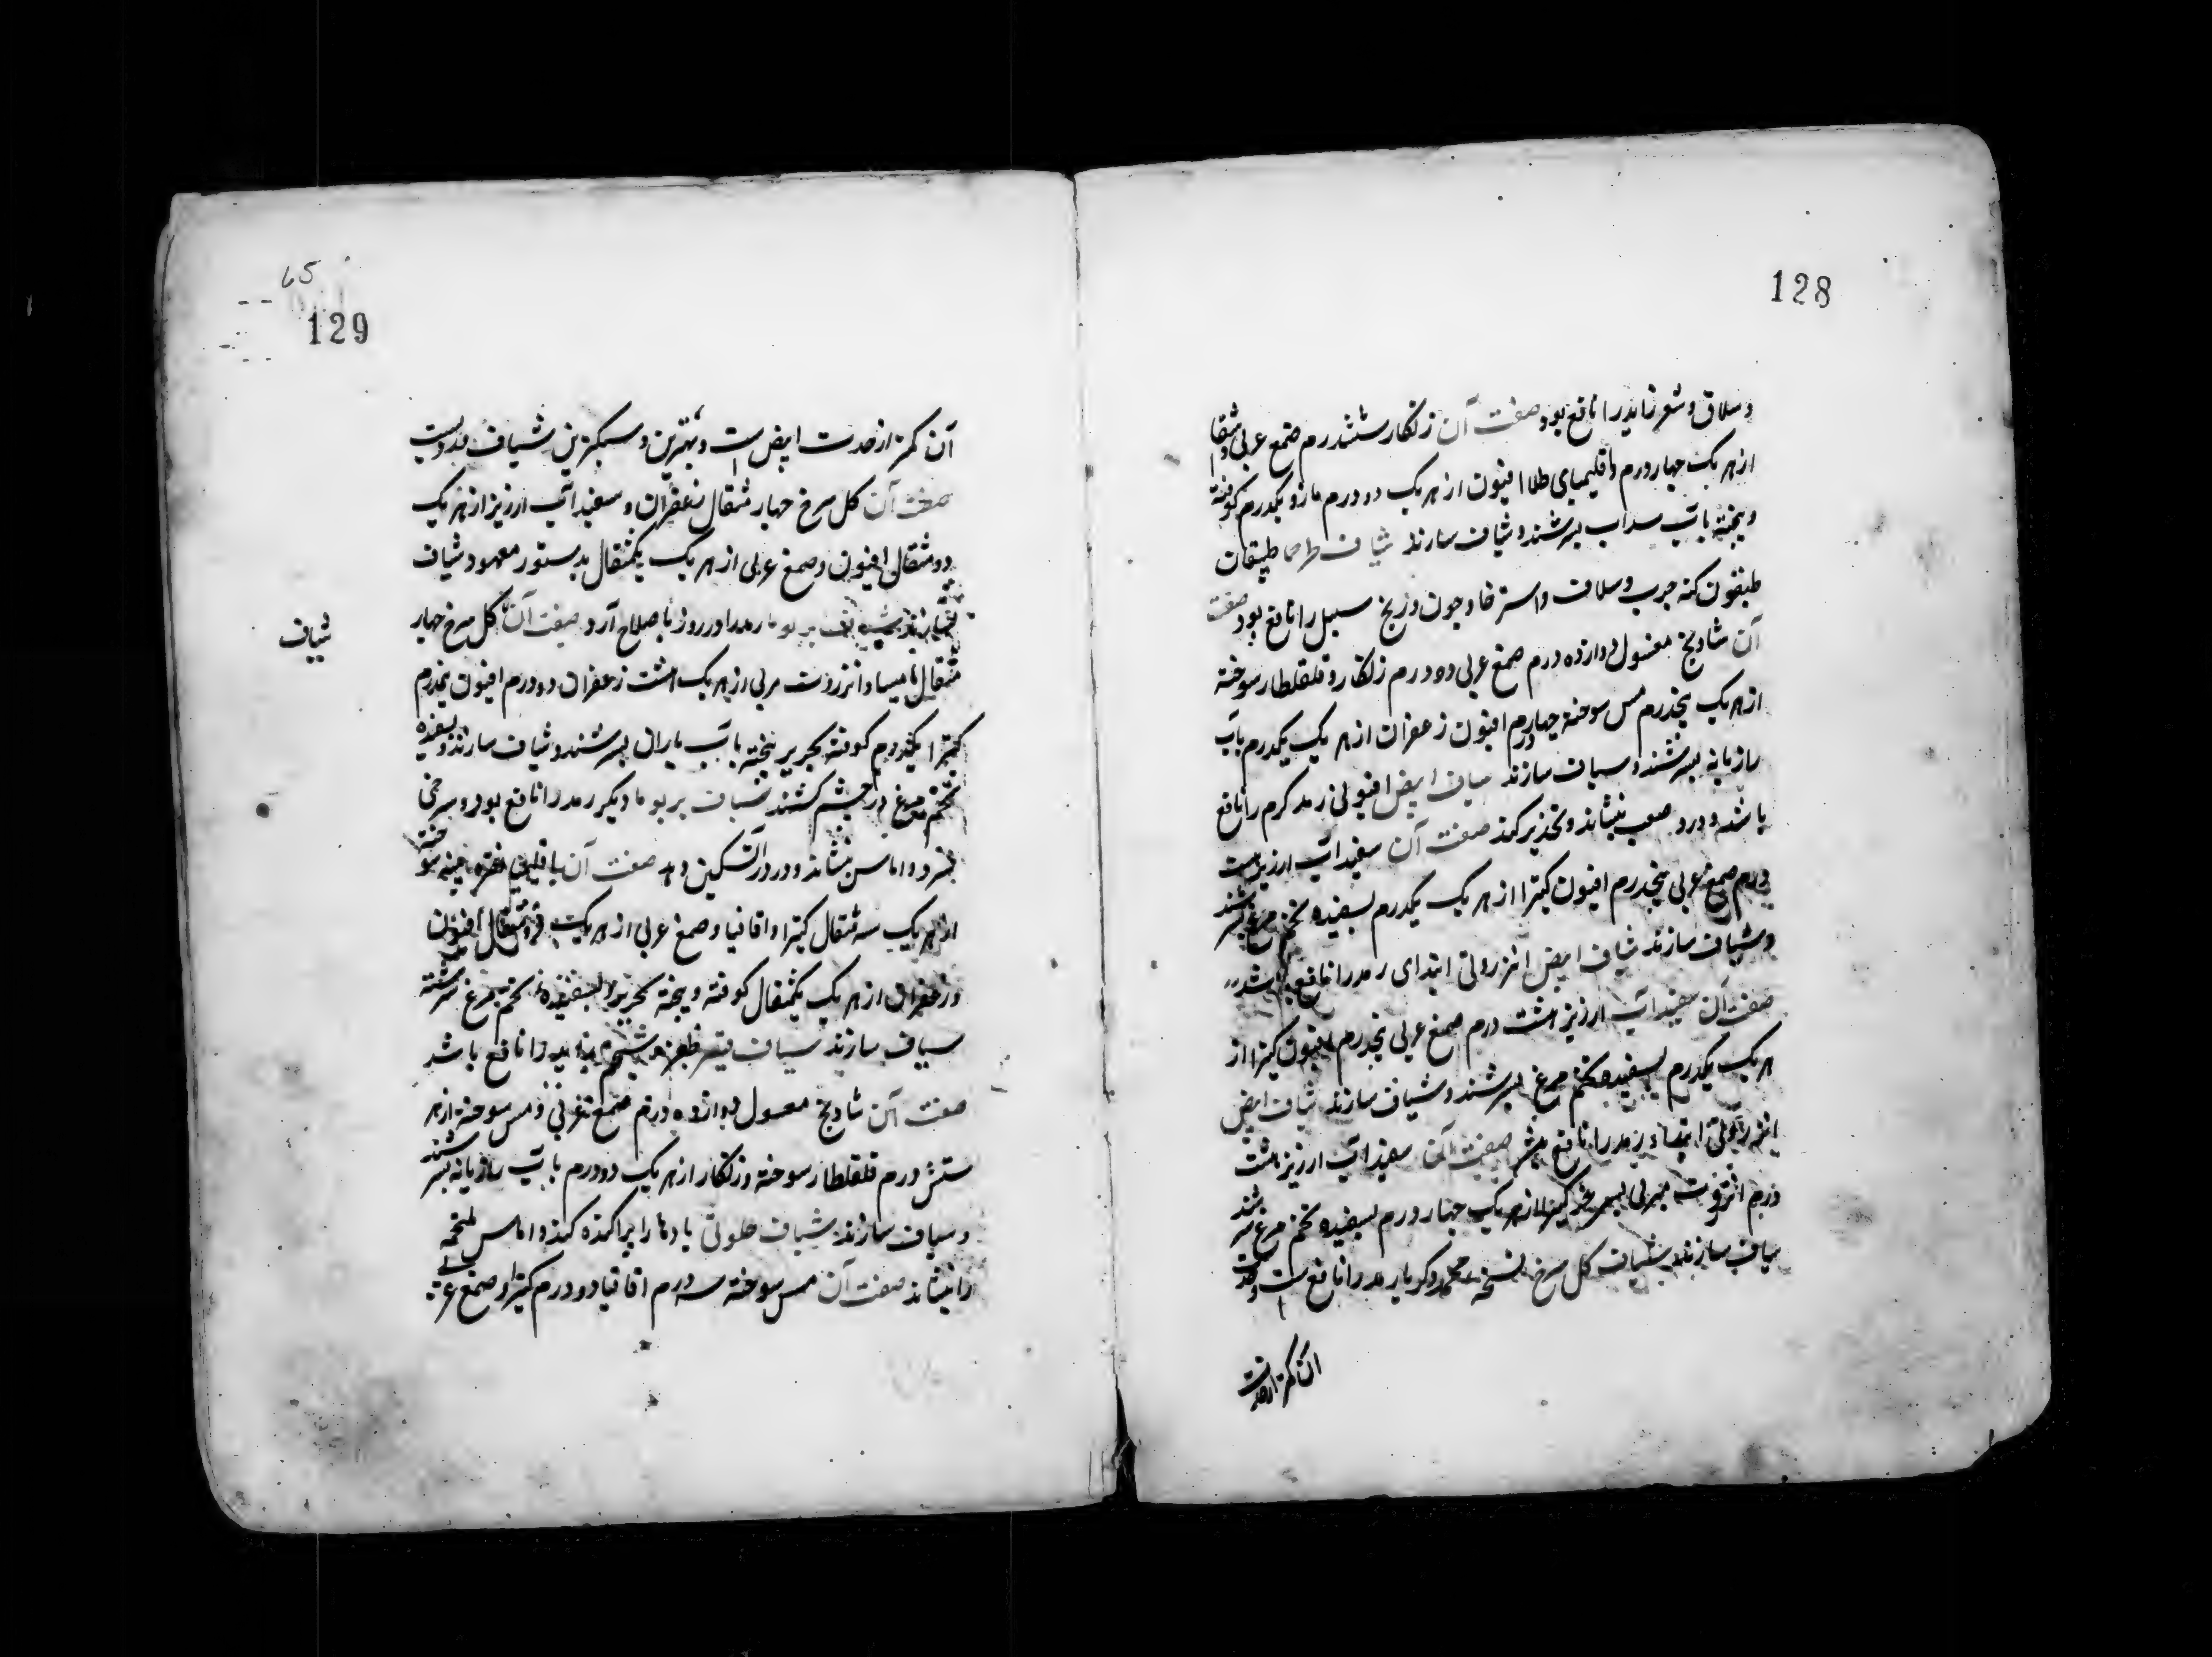 128
وسلاق و شعر زاید را نافع بود صفت آن زنگار ششدرم صمغ عربی و اشق
از هر یک چهار درم واقلیمیای طلا افیون از هر یک دو درم مازو یکدرم کوفته
وبیخته باب سداب بسرشند و شیاف سازند شیاف
کنه جرب وسلاق واسترخا و چون وزیخ سبل را نافع بود صفت
آن شادنج مغسول دوازده درم صمغ عربی ده درم زنگار و قلقطار سوخته
از هر یک پنجدرم مس سوخته چهار درم افیون زعفران از هر یک یکدرم باب
رازیانه بسرشند و سیاف سازند سیاف ابیض افیونی رمد کرم را نافع
باشد ودرد صعب بنشاند وتخدیر کند صفت آن سفیداب ارزیز هشت
درم صمغ عربی پنجدرم افیون کتیرا از هر یک یکدرم بسفیده تخم مرغ بسرشند
وشیاف سازند شیاف ابیض انزروتی ابتدای رمد را نافع باشد
صفت آن سفیداب ارزیز هشت درم صمغ عربی پنجدرم افیون کتیرا از
هر یک یکدرم بسفیده تخم مرغ بسرشند و شیاف سازند شیاف ابیض
انزروتی ابتداء رمد را نافع صفت آن سفیداب ارزیز هشت
درم انزروت مربی کتیرا از هر یک چهار درم بسفیده تخم مرغ بسرشند
سیاف سازند شیاف کل سرخ نسخه محمد زکریا رمد را نافع است وحدت
آن کمتر از حدت
65
129
آن کمتر از حدت ابیض است و بهترین و سبکترین شیاف
صفت آن کل سرخ چهار مثقال زعفران و سفیداب ارزیز از هر یک
دو مثقال افیون و صمغ عربی از هر یک یکمثقال بدستور معهود شیاف
سازند شیاف بر یوما رمد را در روز باصلاح آرد صفت آن کل سرخ چهار
مثقال مامیسا و انزروت مربی از هر یک هشت زعفران دو درم افیون نیمدرم
کتیرا یکدرم کوفته بحریر بیخته باب باران بسرشند و شیاف سازند و بسفیده
تخم مرغ در چشم کشند شیاف بر یوما دیکر رمد را نافع بود و سرخی
ببرد و اماس بنشاند و درد را تسکین دهد صفت آن اقلیمی نقره مس سوخته
از هر یک سه مثقال کتیرا و اقاقیا و صمغ عربی از هر یک دو مثقال افیون
وزعفران از هر یک یکمثقال کوفته و بیخته بحریر بسفیده تخم مرغ سرشته
سیاف سازند سیاف قیصر ظفره را نافع باشد
صفت آن شادنج مغسول دوازده درم صمغ عربی و مس سوخته از هر
شش درم قلقطار سوخته و زنکار از هر یک دو درم باب رازیانه بسرشند
و سیاف سازند شیاف حلوتی بادها را پراکنده کند و اماس ملتحمه
را بنشاند صفت آن مس سوخته سه درم اقاقیا دو درم کتیرا و صمغ عربی
شیاف